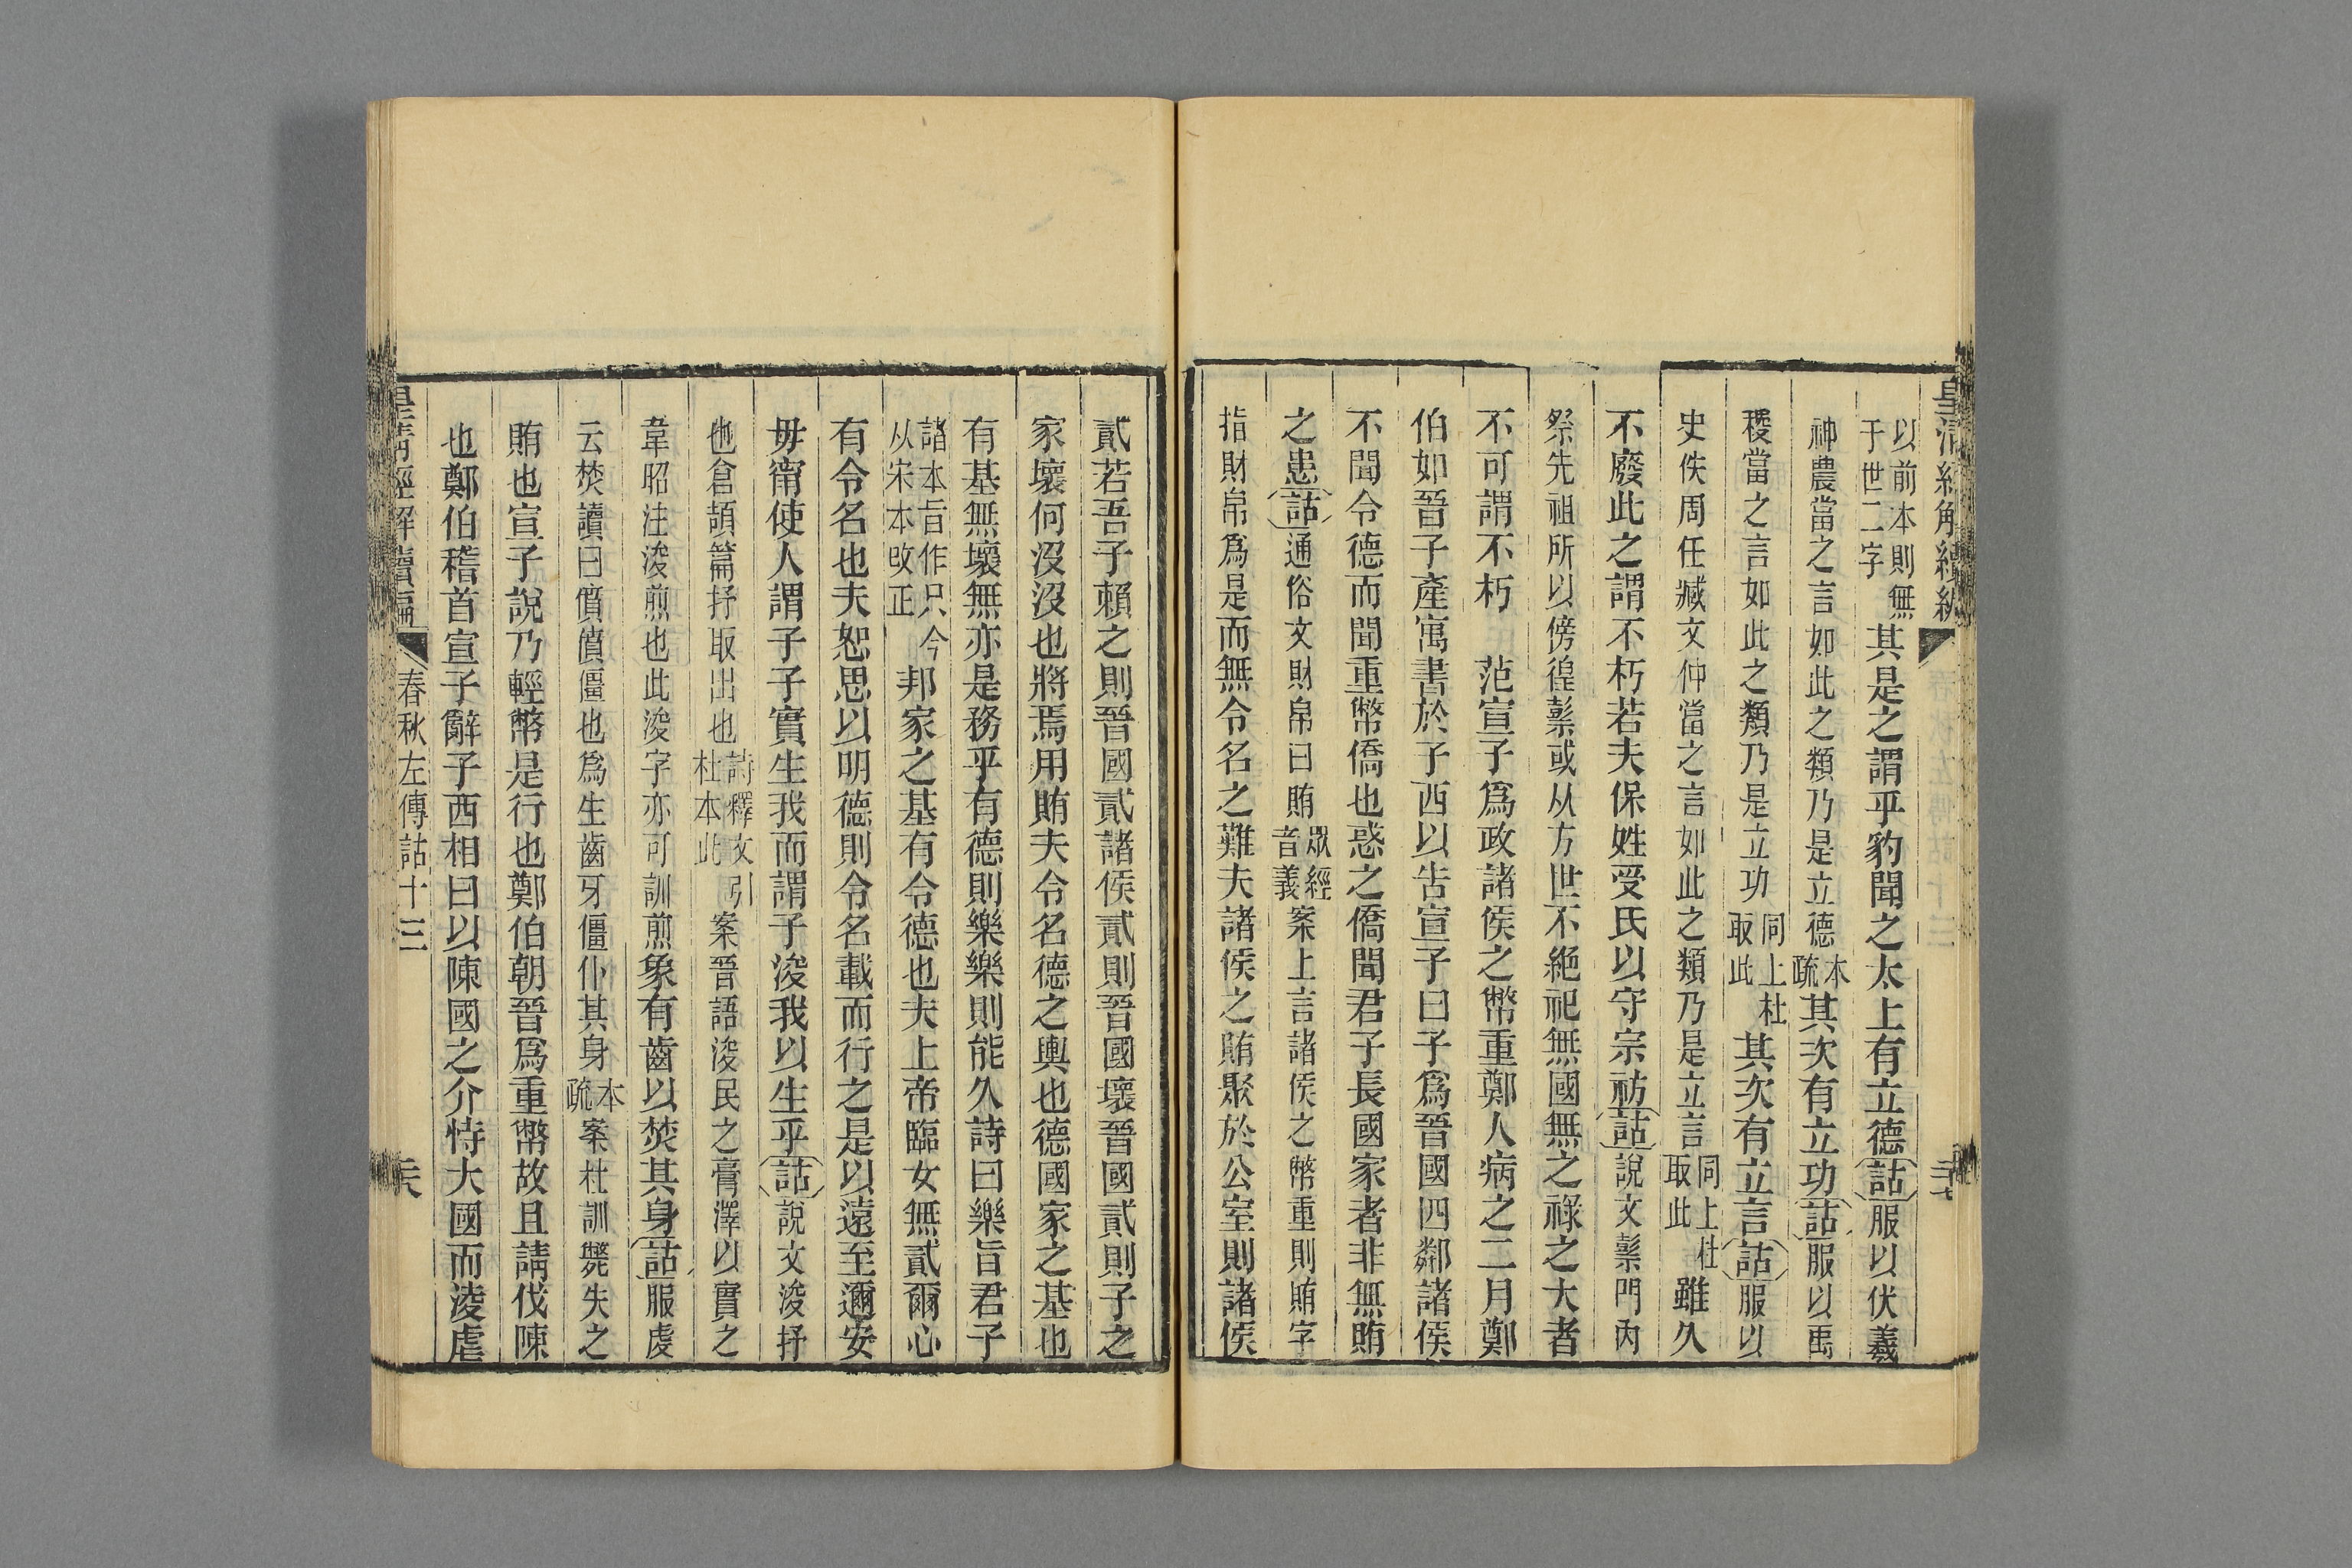 皇清經解續編
以前本則無
于世二字
其是之謂乎豹聞之太上有立德詁服以伏羲
神農當之言如此之類乃是立德
本
疏
其次有立功詁服以禹
稷當之言如此之類乃是立功
同上杜
取此
其次有立言詁服以
史佚周任臧文仲當之言如此之類乃是立言
同上杜
取此
雖久
不廢此之謂不朽若夫保姓受氏以守宗祊詁說文𥛱門內
祭先祖所以傍徨𥛱或从方世不絕祀無國無之祿之大者
不可謂不朽　范宣子爲政諸侯之幣重鄭人病之二月鄭
伯如晉子產寓書於子西以告宣子曰子爲晉國四鄰諸侯
不聞令德而聞重幣僑也惑之僑聞君子長國家者非無賄
之患詁通俗文財帛曰賄
眾經
音義
案上言諸侯之幣重則賄字
指財帛爲是而無令名之難夫諸侯之賄聚於公室則諸侯
貳若吾子賴之則晉國貳諸侯貳則晉國壞晉國貳則子之
家壞何沒沒也將焉用賄夫令名德之輿也德國家之基也
有基無壞無亦是務乎有德則樂樂則能久詩曰樂旨君子
諸本旨作只今
从宋本改正
邦家之基有令德也夫上帝臨女無貳爾心
有令名也夫恕思以明德則令名載而行之是以遠至邇安
毋甯使人謂子子實生我而謂子浚我以生乎詁說文浚抒
也倉頡篇抒取出也
詩釋文引
杜本此
案晉語浚民之膏澤以實之
韋昭注浚煎也此浚字亦可訓煎象有齒以焚其身詁服虔
云焚讀曰僨僨僵也爲生齒牙僵仆其身
本
疏
案杜訓斃失之
賄也宣子說乃輕幣是行也鄭伯朝晉爲重幣故且請伐陳
也鄭伯稽首宣子辭子西相曰以陳國之介恃大國而淩虐
皇清經解續編
春秋左傳詁十三